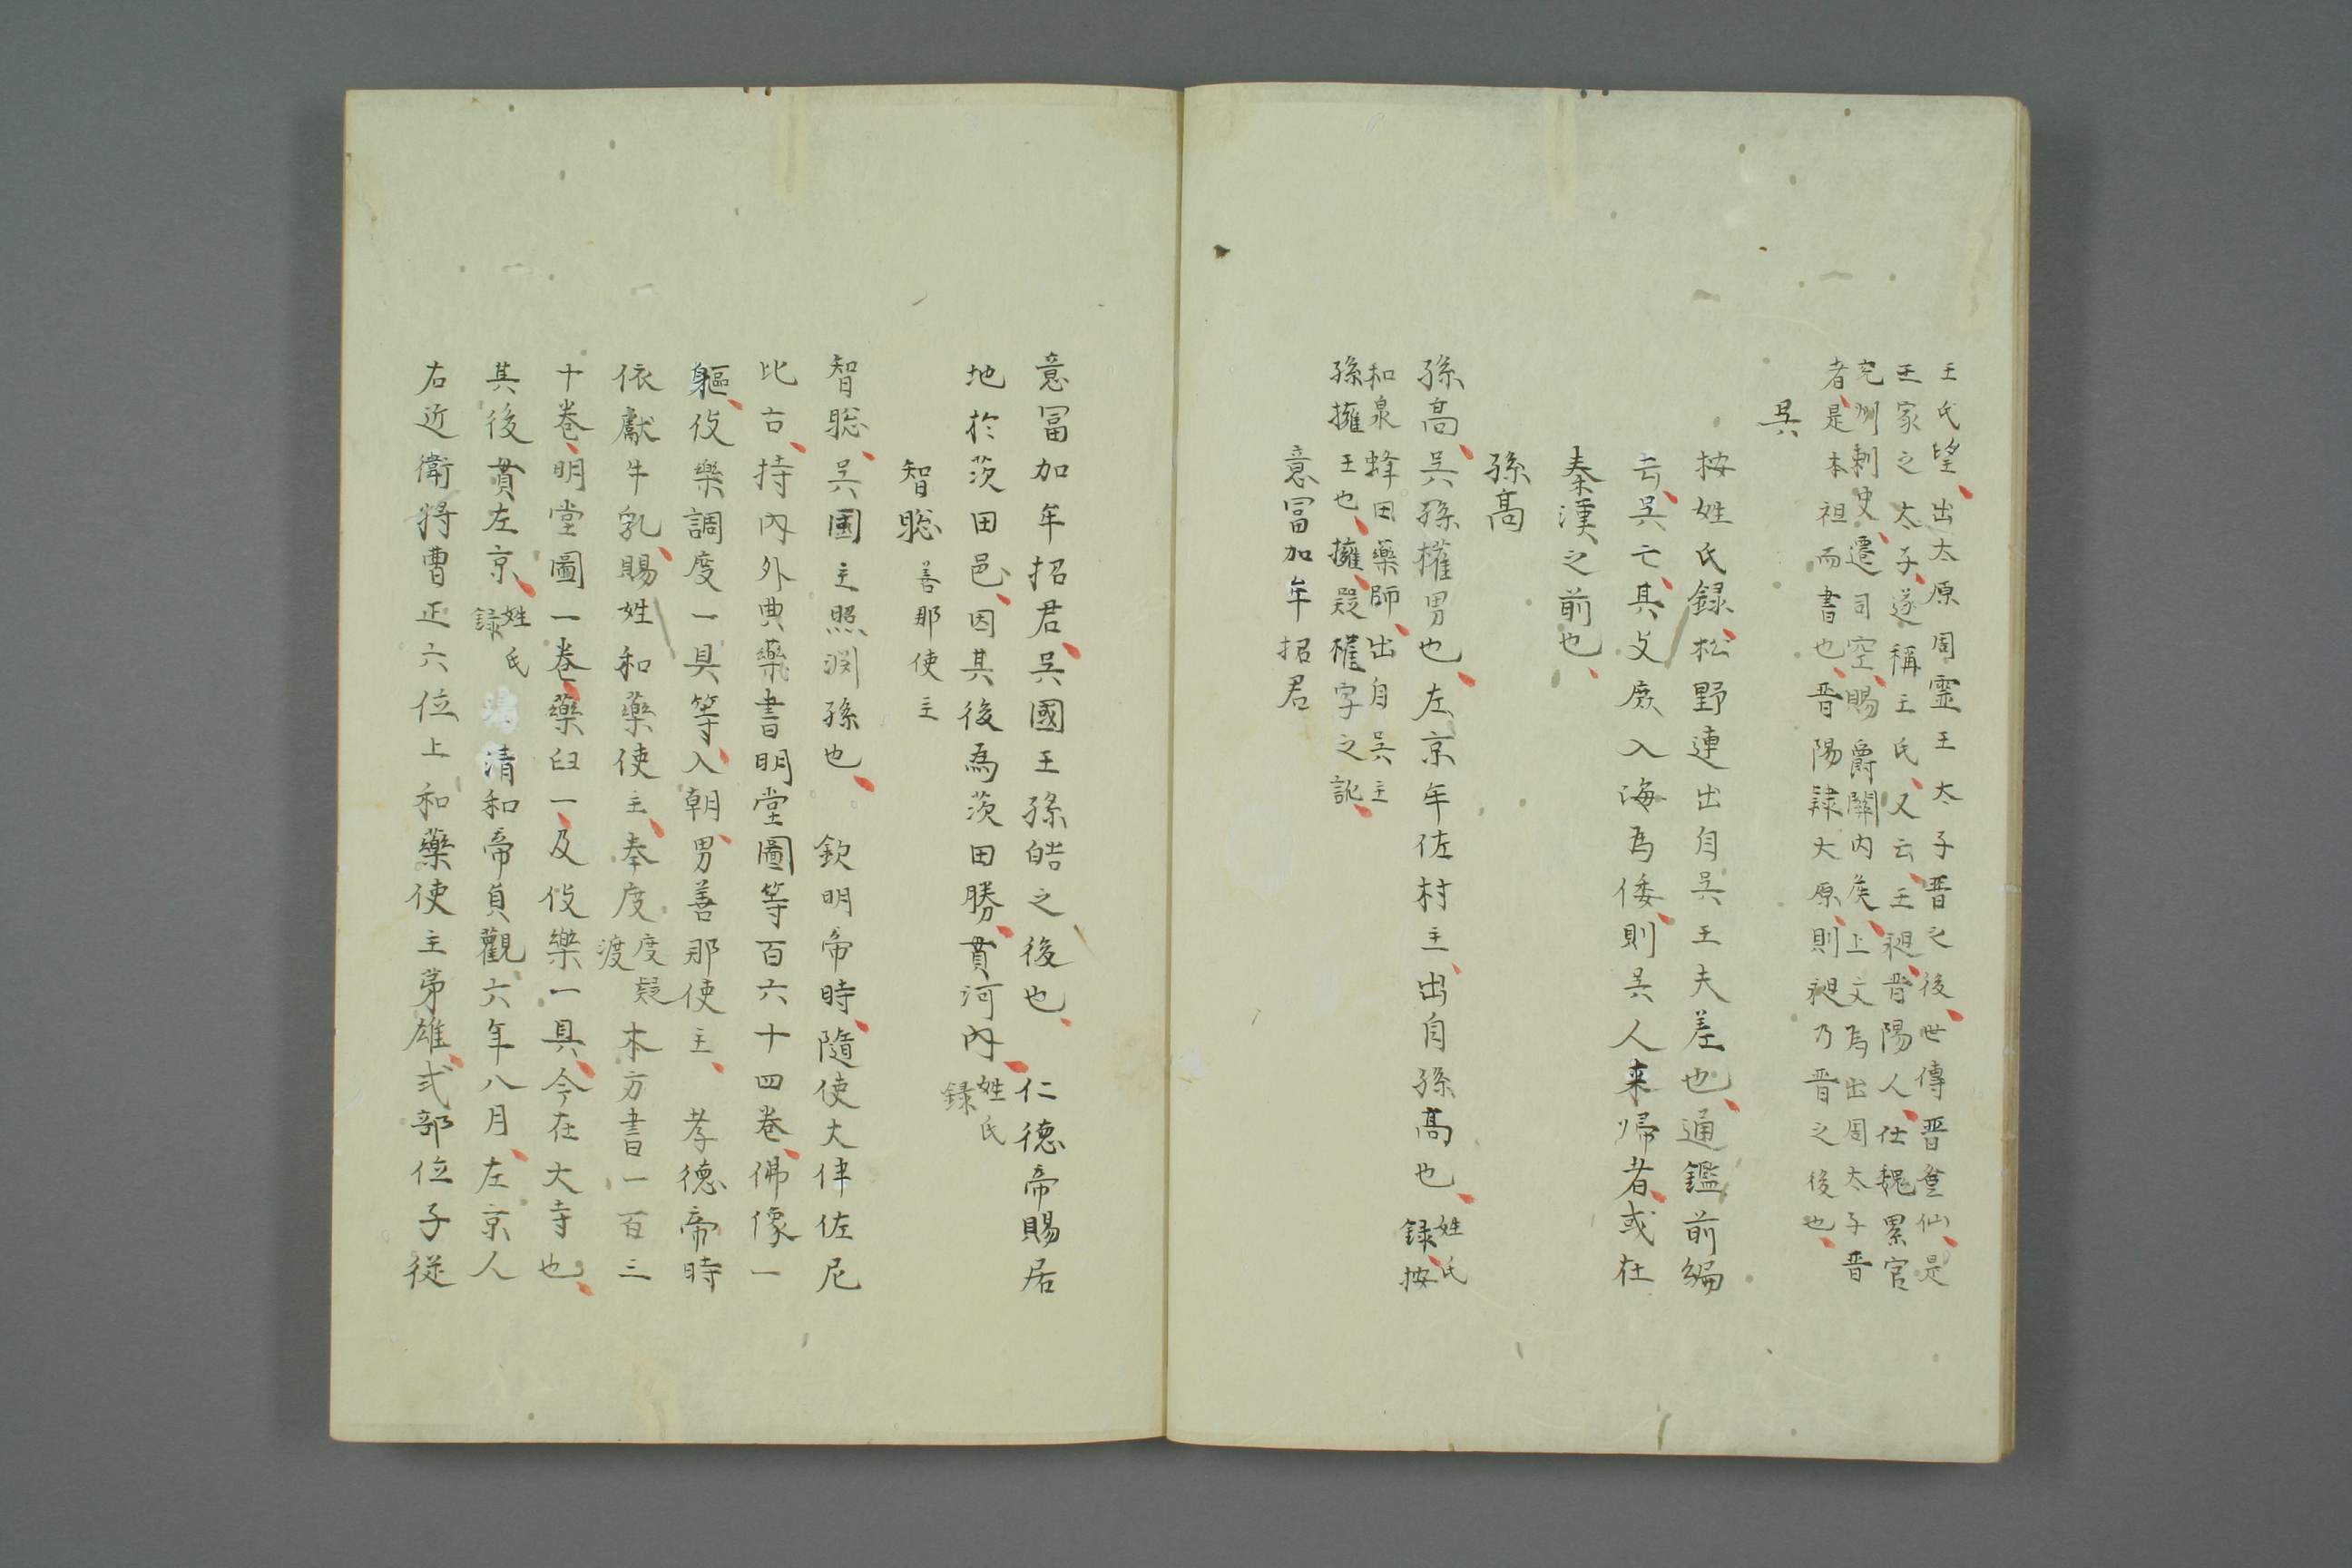 王氏望出太原周霊王太子晋之後世傳晋登仙是
王家之太子遂稱王氏又云王昶晋陽人仕魏累官
兖州刺史遷司空賜爵關内侯上文為出周太子晋
者是本祖而書也晋陽隷大原則昶乃晋之後也
呉
按姓氏録松野連出自呉王夫差也通鑑前編
云呉亡其支庶入海為倭則呉人来帰者或在
秦漢之前也
孫高
孫高呉孫權男也左京牟佐村主出自孫高也姓氏録按
和泉蜂田藥師出自呉主
孫擁王也擁疑權字之訛
意冨加牟招君
意冨加牟招君呉國王孫皓之後也 仁徳帝賜居
地於茨田邑因其後為茨田勝貫河内姓氏録
智聡善那使主
智聡呉國主照渕孫也 欽明帝時隨使大伴佐尼
比古持内外典藥書明堂圖等百六十四巻佛像一
軀伎樂調度一具等入朝男善那使主 孝徳帝時
依獻牛乳賜姓和藥使主奉度度疑渡本方書一百三
十巻明堂圖一巻藥臼一及伎樂一具今在大寺也
其後貫左京姓氏録 清和帝貞觀六年八月左京人
右近衛将曹正六位上和藥使主弟雄式部位子従